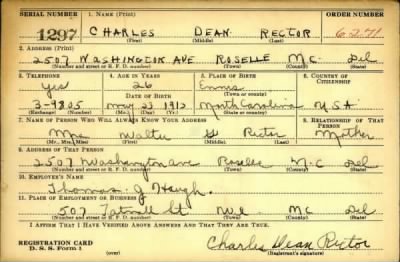 SERIAL NUMBER 1. NAME (Print) ORDER NUMBER
1297 CHARLES DEAN RECTOR 6271
(First) (Middle) (Last)
2. ADDRESS (Print)
2507 WASHINGTON AVE ROSELLE N.C. Del
(Number and street or R. F. D. number) (Town) (County) (State)
3. TELEPHONE 4. AGE IN YEARS 5. PLACE OF BIRTH 6. COUNTRY OF CITIZENSHIP
Yes 26
DATE OF BIRTH
3-9805 May 23 1912 North Carolina U.S.A
(Exchange) (Number) (Mo.) (Day) (Yr.) (State or country)
7. NAME OF PERSON WHO WILL ALWAYS KNOW YOUR ADDRESS 8. RELATIONSHIP OF THAT PERSON
Mrs Walter Rector Mother
(Mr., Mrs., Miss) (First) (Middle) (Last)
9. ADDRESS OF THAT PERSON
2507 Washington ave Roselle N-C Del
(Number and street or R. F. D. number) (Town) (County) (State)
10. EMPLOYER'S NAME
Thomas J Haugh.
11. PLACE OF EMPLOYMENT OR BUSINESS
507 Tatnall St Wil. NC Del
(Number and street or R. F. D. number) (Town) (County) (State)
I AFFIRM THAT I HAVE VERIFIED ABOVE ANSWERS AND THAT THEY ARE TRUE.
REGISTRATION CARD
D. S. S. Form 1 (over) Charles Dean Rector
(Registrant's signature)